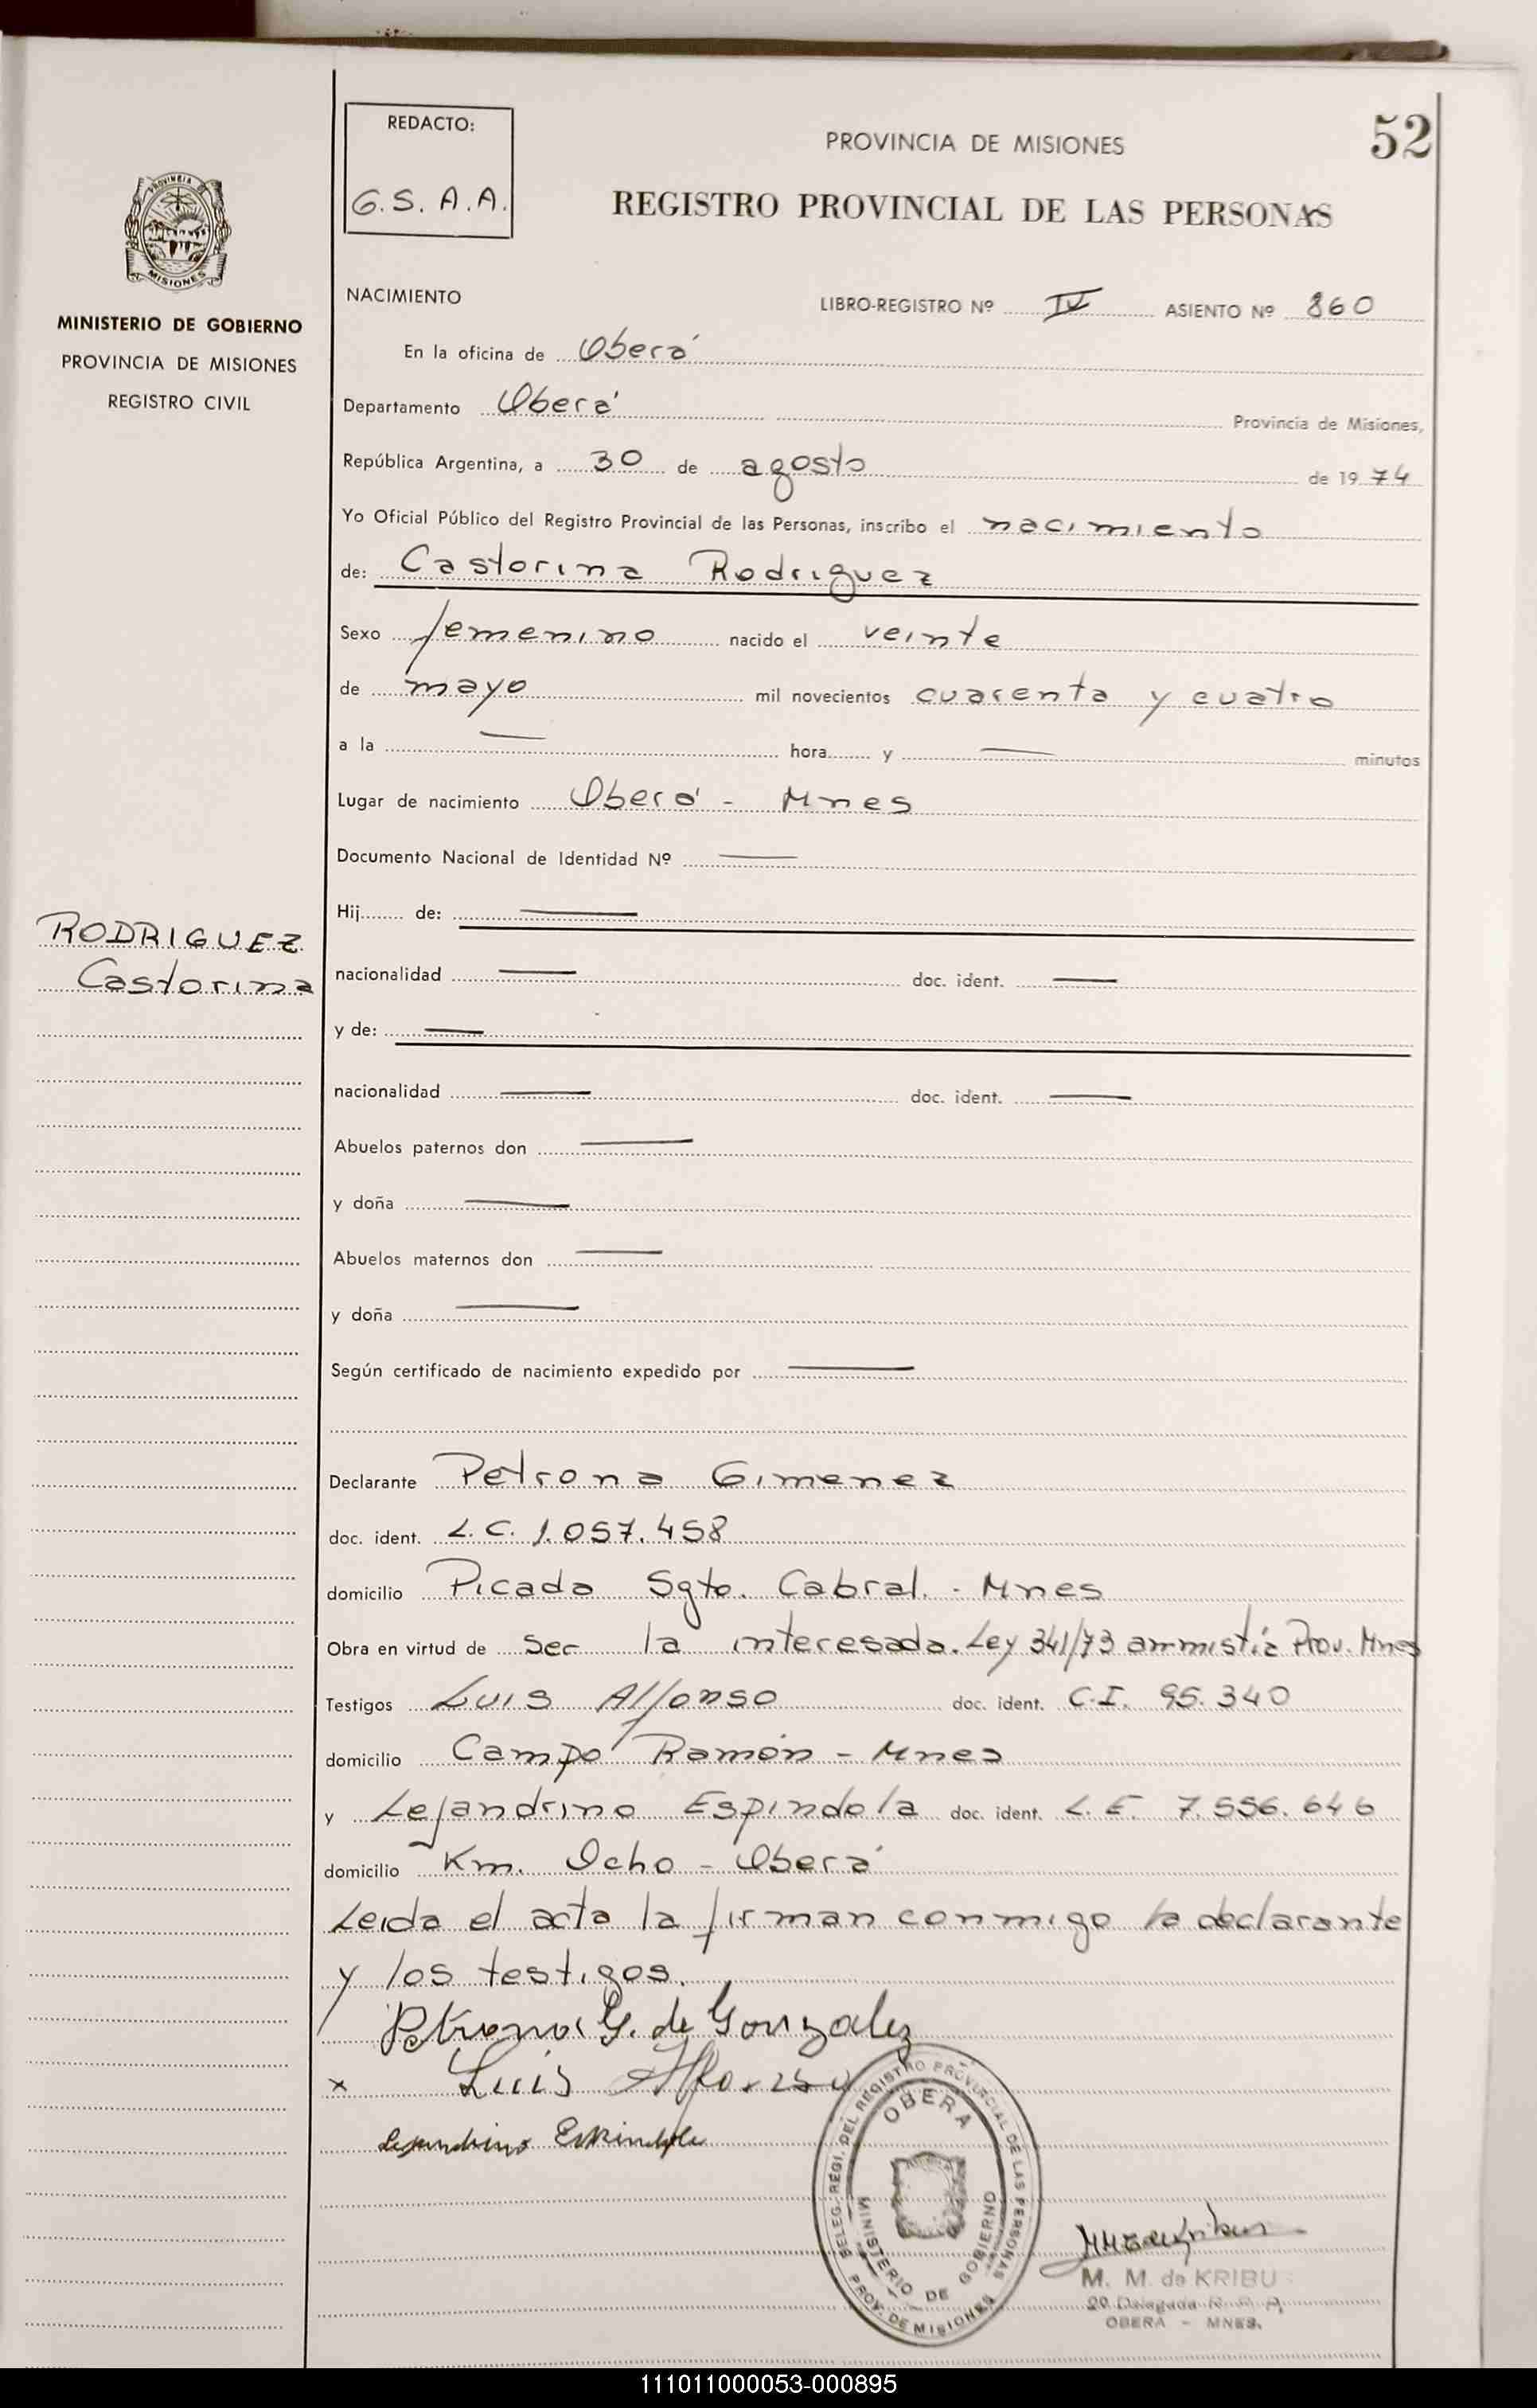 REDACTO:
G. S. A. A.
PROVINCIA DE MISIONES
52
REGISTRO PROVINCIAL DE LAS PERSONAS
PROVINCIA DE
MISIONES
MINISTERIO DE GOBIERNO
PROVINCIA DE MISIONES
REGISTRO CIVIL
NACIMIENTO
LIBRO-REGISTRO Nº IV ASIENTO Nº 860
En la oficina de Oberá
Departamento Oberá Provincia de Misiones,
República Argentina, a 30 de agosto de 1974
Yo Oficial Público del Registro Provincial de las Personas, inscribo el nacimiento
de: Castorina Rodriguez
Sexo femenino nacido el veinte
de mayo mil novecientos cuarenta y cuatro
a la — hora y — minutos
Lugar de nacimiento Oberá - Mnes
Documento Nacional de Identidad Nº —
Hij de: —
RODRIGUEZ
Castorina
nacionalidad — doc. ident. —
y de: —
nacionalidad — doc. ident. —
Abuelos paternos don —
y doña —
Abuelos maternos don —
y doña —
Según certificado de nacimiento expedido por —
Declarante Petrona Gimenez
doc. ident. L. C. 1.057.458
domicilio Picada Sgto. Cabral. - Mnes
Obra en virtud de ser la interesada. Ley 341/73 ammistía Prov. Mnes
Testigos Luis Alfonso doc. ident. C.I. 95.340
domicilio Campo Ramón - Mnes
y Lejandrino Espindola doc. ident. L. E. 7.556.646
domicilio Km. Ocho - Oberá
Leida el acta la firman conmigo la declarante
y los testigos.
Petrona G. de Gonzalez
x Luis Alfonso
Lejandrino Espindola
DEL REGISTRO PROVINCIAL DE LAS PERSONAS
OBERA
MINISTERIO DE GOBIERNO
PROV. DE MISIONES
M. M. de KRIBU
OBERA - MNES.
111011000053-000895